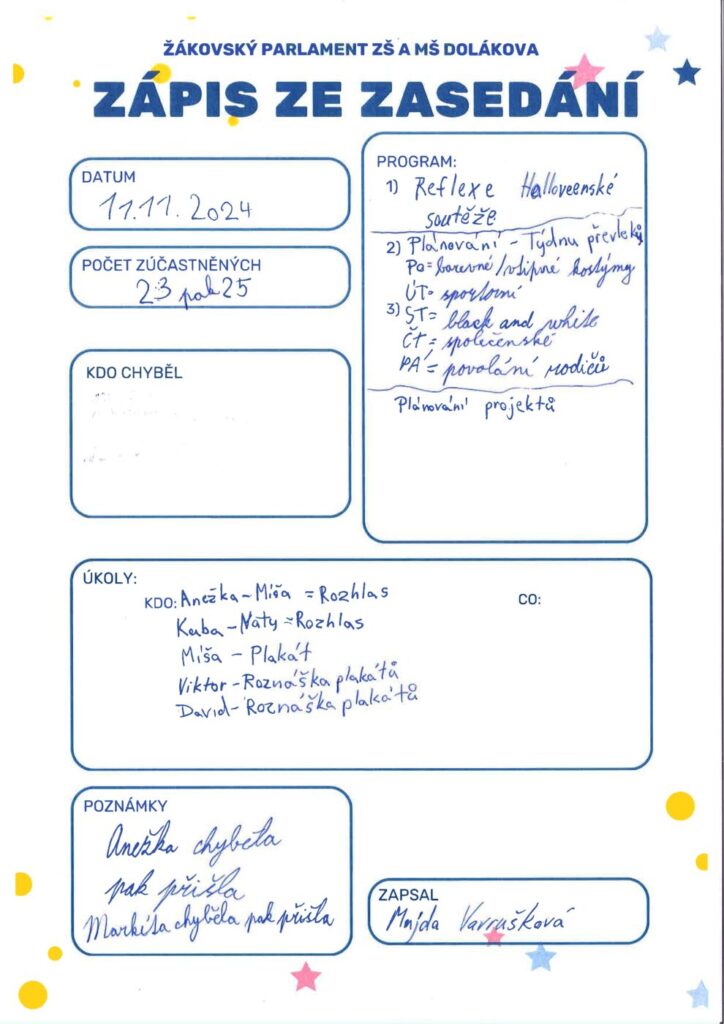 ŽÁKOVSKÝ PARLAMENT ZŠ A MŠ DOLÁKOVA
ZÁPIS ZE ZASEDÁNÍ
DATUM
11.11. 2024
POČET ZÚČASTNĚNÝCH
23 pak 25
KDO CHYBĚL
PROGRAM:
1) Reflexe Halloveenské
soutěže
2) Plánování - Týdnu převleků
Po = barevné/vtipné kostýmy
ÚT = sportovní
3) ST = black and white
ČT = společenské
PÁ = povolání rodičů
Plánování projektů
ÚKOLY:
KDO: Anežka - Míša = Rozhlas
CO:
Kuba - Naty = Rozhlas
Míša - Plakát
Viktor - Roznáška plakátů
David - Roznáška plakátů
POZNÁMKY
Anežka chyběla
pak přišla
Markéta chyběla pak přišla
ZAPSAL